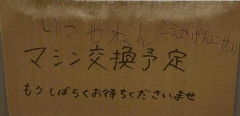 いつやねん
マシン交換予定
もうしばらくお待ちくださいませ